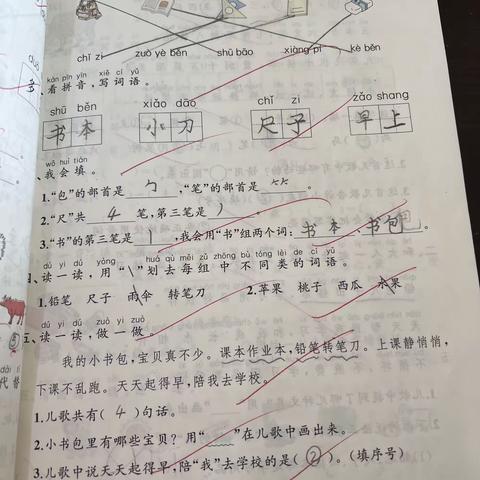 chǐ zi zuò yè běn shū bāo xiàng pí kè běn
kàn pīn yīn xiě cí yǔ
、看拼音,写词语。
shū běn xiǎo dāo chǐ zi zǎo shang
书本 小刀 尺子 早上
wǒ huì tián
、我会填。
1.“包”的部首是勹,“笔”的部首是⺮。
2.“尺”共4笔,第三笔是㇓。
3.“书”的第三笔是丨,我会用“书”组两个词:书本、书包。
dú yi dú yòng huá qù měi zǔ zhōng bù tóng lèi de cí yǔ
四、读一读,用“\”划去每组中不同类的词语。
1.铅笔 尺子 雨伞 转笔刀 2.苹果 桃子 西瓜 水果
dú yi dú zuò yi zuò
五、读一读,做一做。
我的小书包,宝贝真不少。课本作业本,铅笔转笔刀。上课静悄悄,
下课不乱跑。天天起得早,陪我去学校。
1.儿歌共有(4)句话。
2.小书包里有哪些宝贝?用“﹏﹏”在儿歌中画出来。
3.儿歌中说天天起得早,陪“我”去学校的是(②)。(填序号)